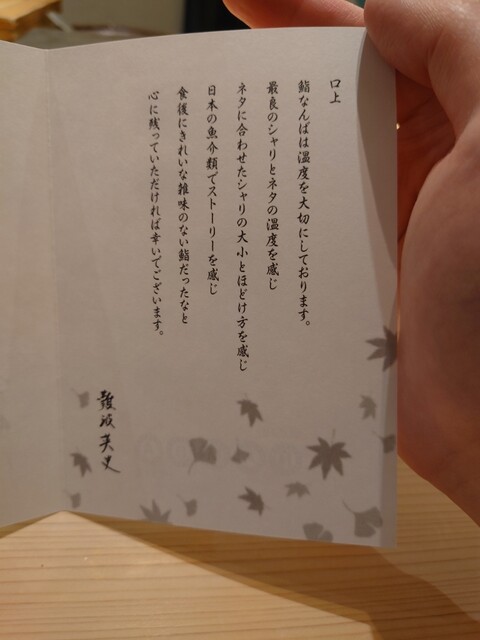 口上
鮨なんばは温度を大切にしております。
最良のシャリとネタの温度を感じ
ネタに合わせたシャリの大小とほどけ方を感じ
日本の魚介類でストーリーを感じ
食後にきれいな雑味のない鮨だったなと
心に残っていただければ幸いでございます。
難波英史